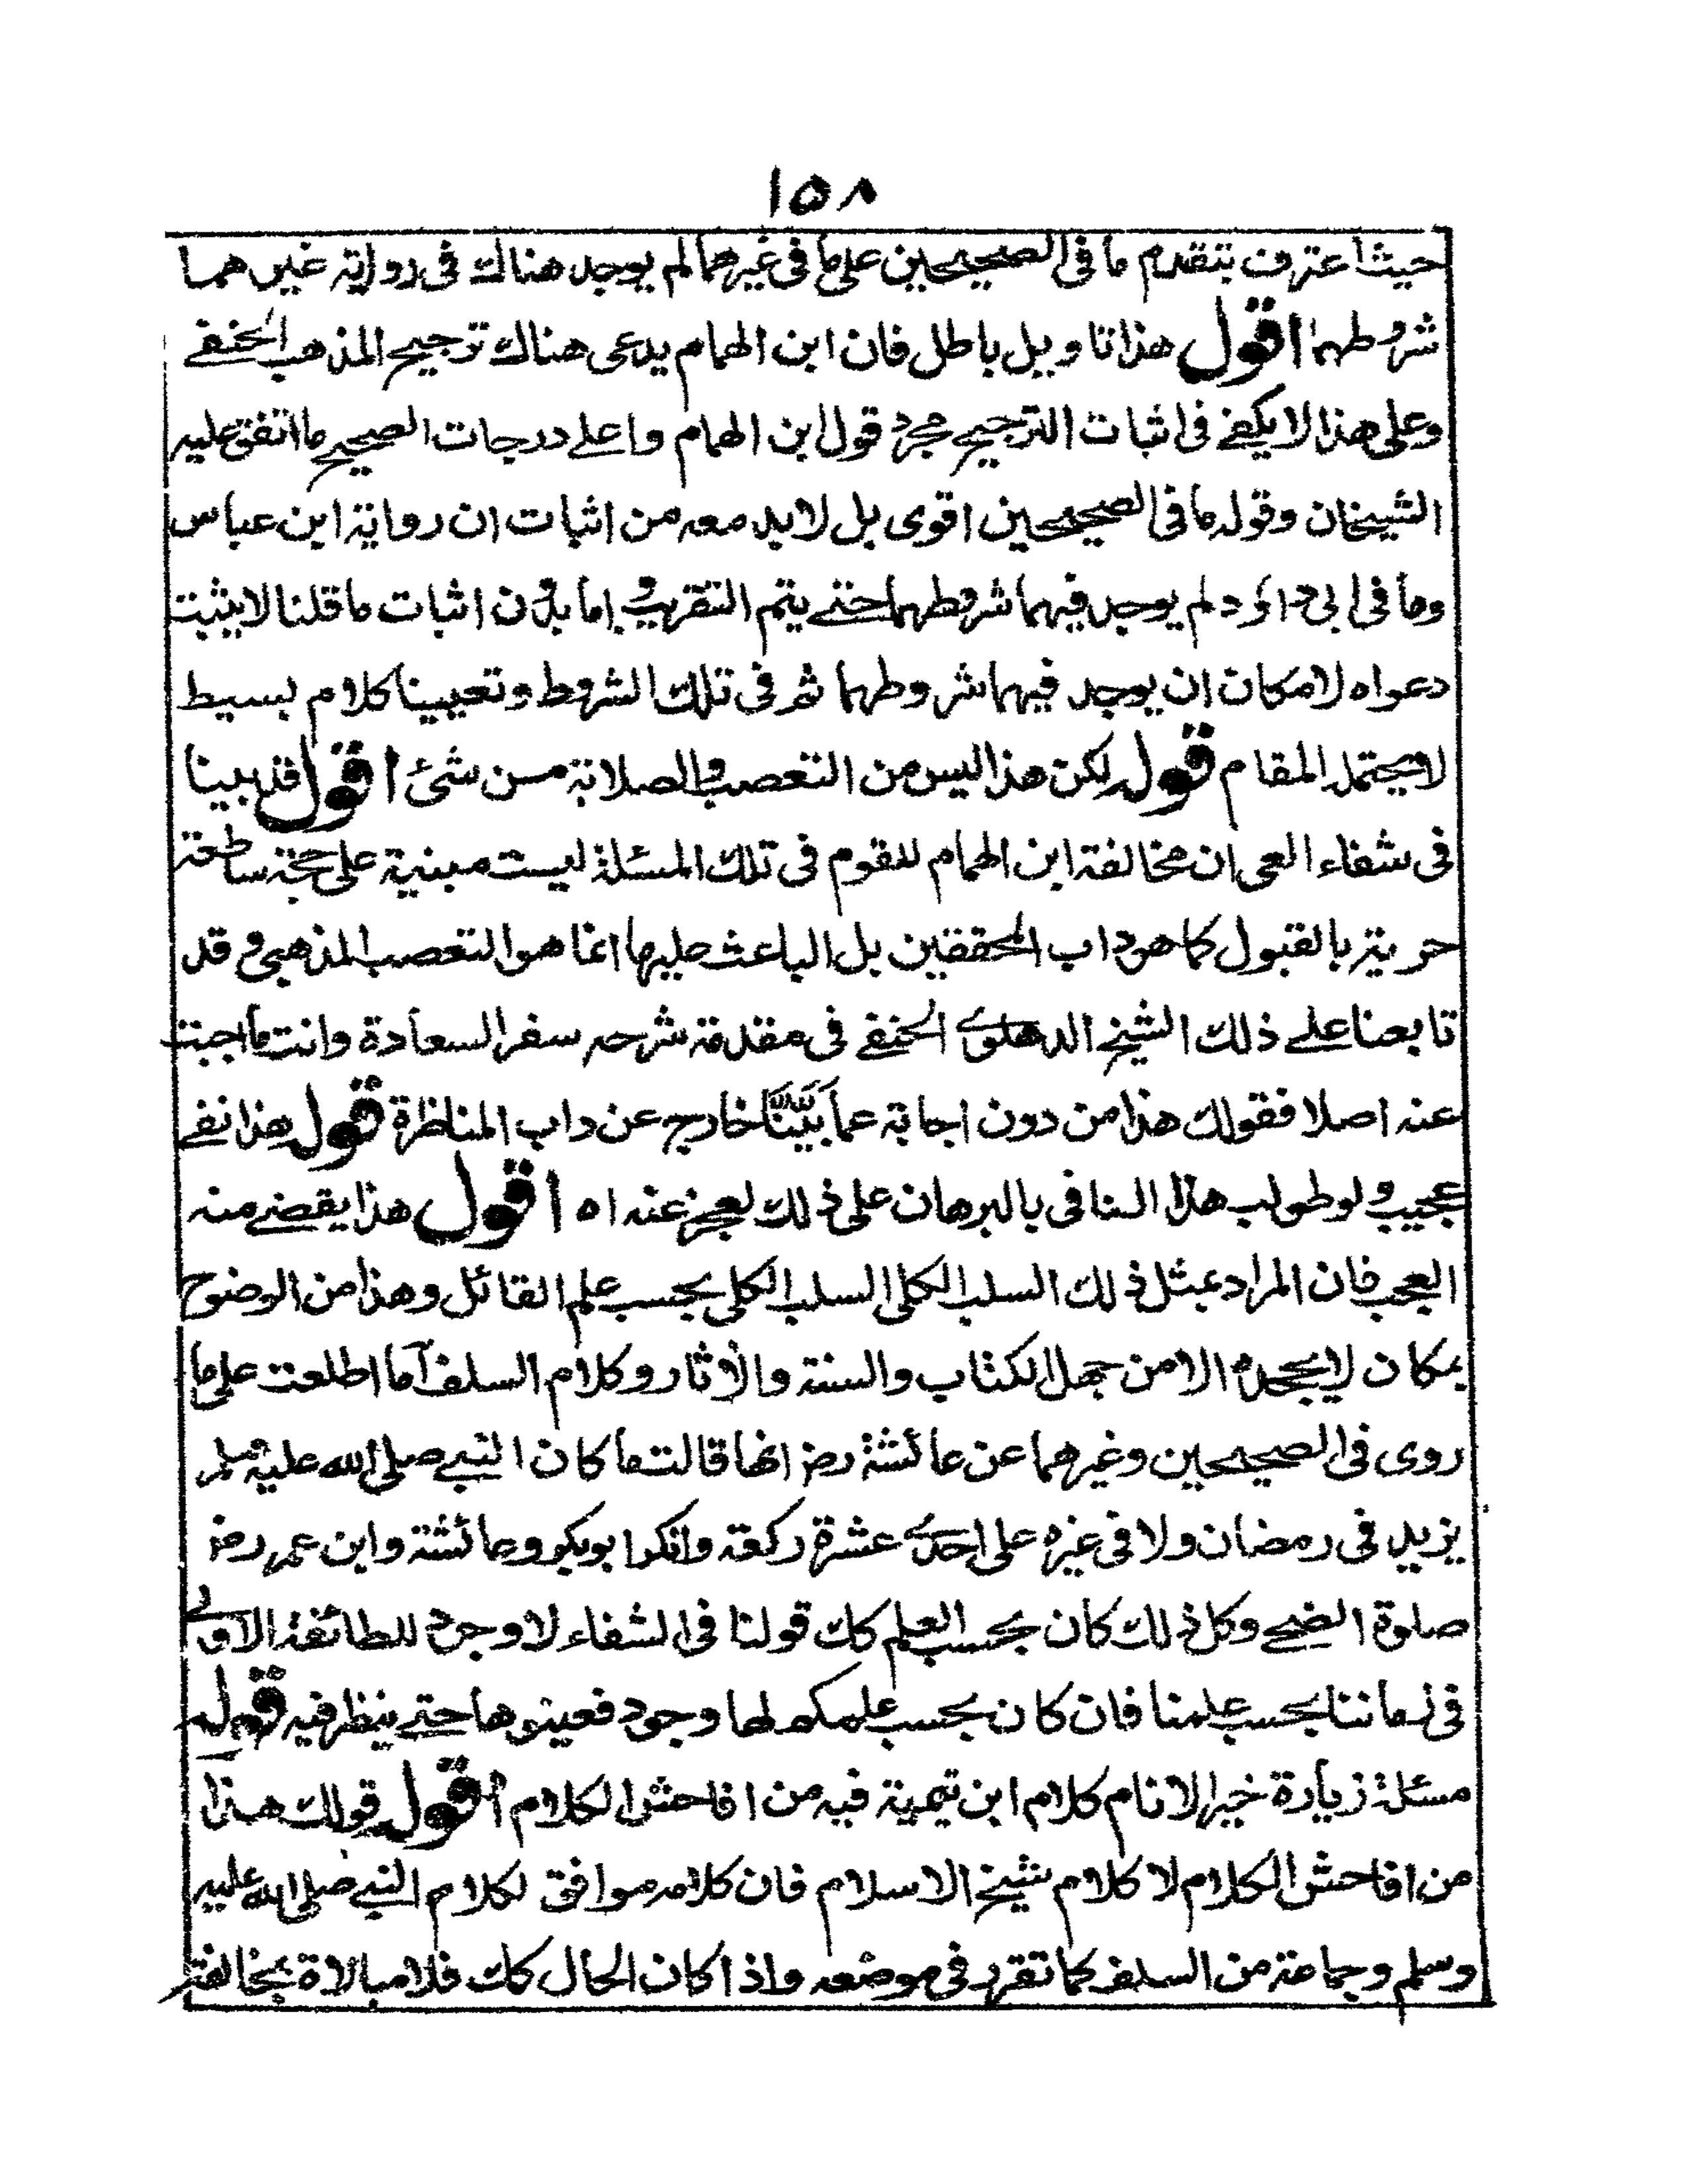 ١٥٨
حيث اعترف بتقدم ما فى الصحيحين على ما فى غيرهما لم يوجد هناك فى رواية غيرهما
شروطهما اقول هذا تاويل باطل فان ابن الهمام يدعى هناك ترجيح المذهب الحنفے
وعلى هذا لا يكفے فى اثبات الترجيح مجرد قول ابن الهمام واعلے درجات الصحيح ما اتفق عليه
الشيخان وقوله ما فى الصحيحين اقوى بل لا بد معه من اثبات ان رواية ابن عباس
وما فى ابى داؤد لم يوجد فيهما شروطهما حتے يتم التقريب واما بدون اثبات ما قلنا لا يثبت
دعواه لامكان ان يوجد فيهما شروطهما ثم فى تلك الشروط وتعيينا كلام بسيط
لا يحتمله المقام قوله لكن هذا ليس من التعصب والصلابة من شئ اقول قد بينا
فى شفاء العى ان مخالفة ابن الهمام للقوم فى تلك المسئلة ليست مبنية على حجة ساطعة
حرية بالقبول كما هو داب المحققين بل الباعث عليها انما هو التعصب المذهبى وقد
تابعنا علے ذلك الشيخ الدهلوے الحنفے فى مقدمة شرحه سفر السعادة وانت ما اجبت
عنه اصلا فقولك هذا من دون اجابة عما بَيَّنَّا خارج عن داب المناظرة قوله هذا نفے
عجيب ولو طولب هذا النافى بالبرهان على ذلك لعجز عنه اه اقول هذا يقضے منه
العجب فان المراد بمثل ذلك السلب الكلى السلب الكلى بحسب علم القائل وهذا من الوضوح
بمكان لا يجحده الا من جهل الكتاب والسنة والآثار وكلام السلف آما اطلعت على ما
روى فى الصحيحين وغيرهما عن عائشة رض انها قالت ما كان النبے صلى الله عليه وسلم
يزيد فى رمضان ولا فى غيره على احدے عشرة ركعة وانكر ابو بكر وعائشة وابن عمر رض
صلوة الضحے وكل ذلك كان بحسب العلم كك قولنا فى الشفاء لا وجود للطائفة الاولے
فى زماننا بحسب علمنا فان كان بحسب علمكم لها وجود فعينوها حتے ينظر فيه قوله
مسئلة زيارة خير الانام كلام ابن تيمية فيه من افاحش الكلام اقول قولك هذا
من افاحش الكلام لا كلام شيخ الاسلام فان كلامه موافق لكلام النبے صلى الله عليه
وسلم وجماعة من السلف كما تقرر فى موضعه واذا كان الحال كك فلا مبالاة بمخالفة